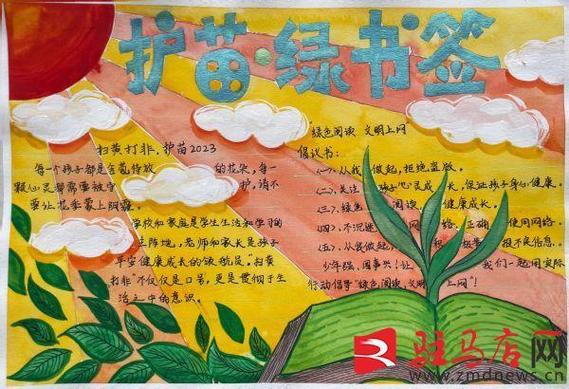 护苗·绿书签
扫黄打非·护苗2023
每一个孩子都是含苞待放的花朵,每一
颗心灵都需要被守护,请不
要让花季蒙上阴霾。
学校和家庭是学生生活和学习的
主阵地,老师和家长是孩子
平安健康成长的
"扫黄
打非"不仅仅是口号,更是贯彻于生
活之中的意识。
"绿色阅读 文明上网"
倡议书:
(一)、从我做起,拒绝盗版。
(二)、关注孩子心灵成长,保证孩子身心健康。
(三)、绿色阅读,健康成长。
(四)、不沉迷网络,正确使用网络。
(五)、从我做起,积极举报不良信息。
少年强、国事兴!让我们一起用实际
行动倡导"绿色阅读、文明上网"!
驻马店网
www.zmdnews.cn